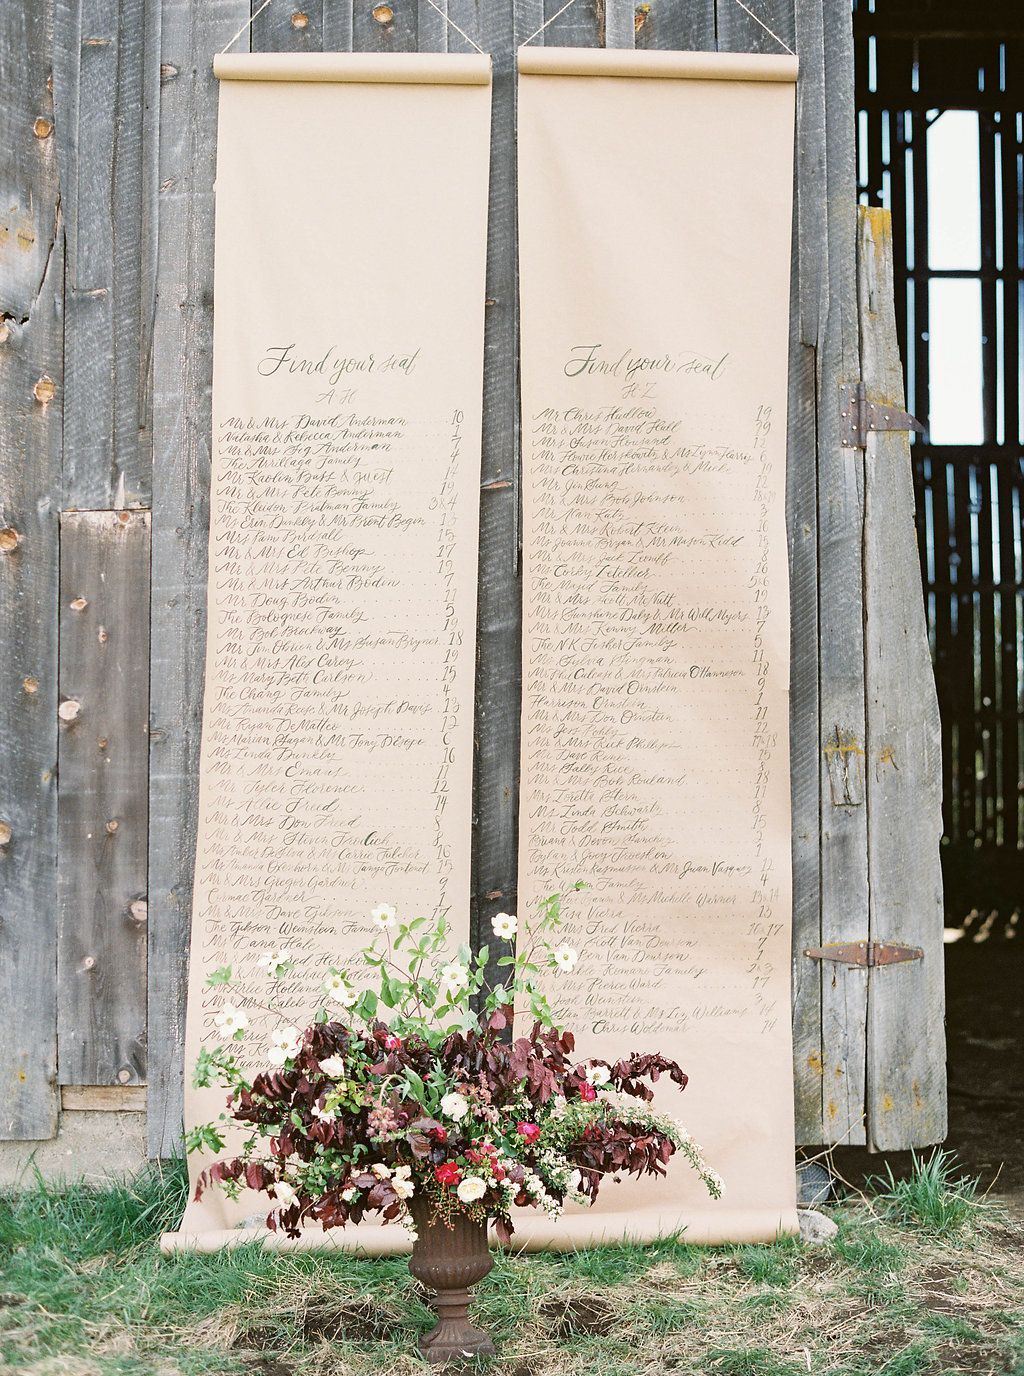 Find your seat
A-H
Mr & Mrs David Anderman 10
Natasha & Rebecca Anderman 1
Mr & Mrs Gig Anderman 7
The Arrillaga Family 4
Mr Kaolin Bass & guest 14
Mr & Mrs Pete Benny 19
The Kleidon Bratman Family 3&4
Ms Erin Dunkley & Mr Brent Begin
Mrs Pam Birdsall 15
Mr & Mrs Ed Bishop 17
Mr & Mrs Pete Benny 19
Mr & Mrs Arthur Bodin 7
Mr Doug Bodin 11
The Bolognese Family 5
Mr Bob Brockway 19
Mr Tim Obrien & Ms Susan Bryner 18
Mr & Mrs Alex Carey 19
Ms Mary Beth Carlson 15
The Chang Family 4
Ms Amanda Reese & Mr Joseph Davis 13
Mr Ryan DeMatteo 12
Ms Marian Hagan & Mr Tony DEsopo 6
Ms Linda Dunkley 16
Mr & Mrs Emaus 11
Mr Tyler Florence 12
Ms Allie Freed 14
Mr & Mrs Don Freed 8
Mr & Mrs Steven Froelich 8
Ms Amber DeSilva & Ms Carrie Fulcher 16
& Mr Tanya Fontenot 15
Mr & Mrs Gregor Gardner 9
Cormac Gardner 1
Mr & Mrs Dave Gibson 17
The Gibson-Weinstein Family
Ms Dana Hale
Fred Hersko
& Michael Holland
Arlie Holland
Mrs Caleb
Mr Chris
Find your seat
H-Z
Mr Chris Hudlow 19
Mr & Mrs David Hall 19
Mrs Susan Housand 12
Mr Howie Herskowitz & Ms Lynn Harris 6
Mrs Christina Hernandez & Mick 19
Mr Jin Sung 12
Mr & Mrs Bob Johnson
Mr Alan Katz 3
Mr & Mrs Robert Kleon 16
Ms Joanna Bryan & Mr Mason Kidd 15
Mr & Mrs Jack Lionff 8
Ms Corby Letellier 16
The Marsh Family 5&6
Mr & Mrs Scott McNutt 19
Mrs Sunshine Daly & Mr Will Myers 13
Mr & Mrs Kenny Miller 7
The NK Fisher Family 5
Ms Sylvia Bingman 11
Mr Phil Calease & Mrs Patricia O'Hanneson 18
Mr & Mrs David Ornstein 9
Harrison Ornstein 1
Mr & Mrs Don Ornstein 11
Ms Jess Pohly 12
Mr & Mrs Rick Phillips 17&18
Ms Dave Reno 15
Mrs Sally Rice 1
Mr & Mrs Bob Rowland 18
Mrs Lorette Stern 11
Ms Linda Schwartz 8
Mr Todd Smith 15
Briana & Devony Sanchez 2
Dylan & Joey Trooskin 1
Ms Kristen Rasmussen & Mr Juan Vasquez 12
The Family 4
& Ms Michelle Warner 13&14
Lisa Vierra 13
Mrs Fred Vierra 16&17
Mrs Scott Van Deusen 7
Ben Van Deusen 1
The Warble Romano Family 2&3
Mr & Mrs Pierce Ward 17
Josh Weinstein 3
Alan Barrett & Ms Ley Williams 14
Mrs Chris Woldemar 14